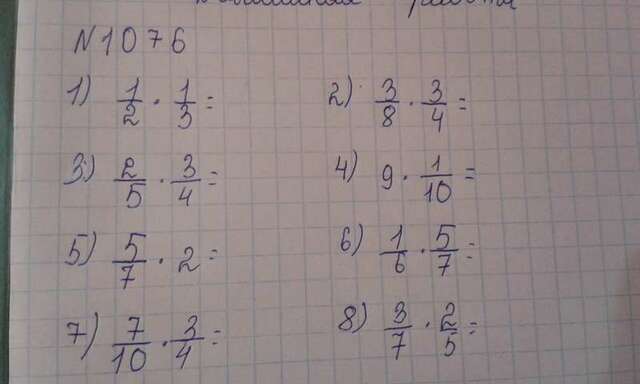 работа
N 1076
1) 1/2 · 1/3 = 2) 3/8 · 3/4 =
3) 2/5 · 3/4 = 4) 9 · 1/10 =
5) 5/7 · 2 = 6) 1/6 · 5/7 =
7) 7/10 · 3/4 = 8) 3/7 · 2/5 =